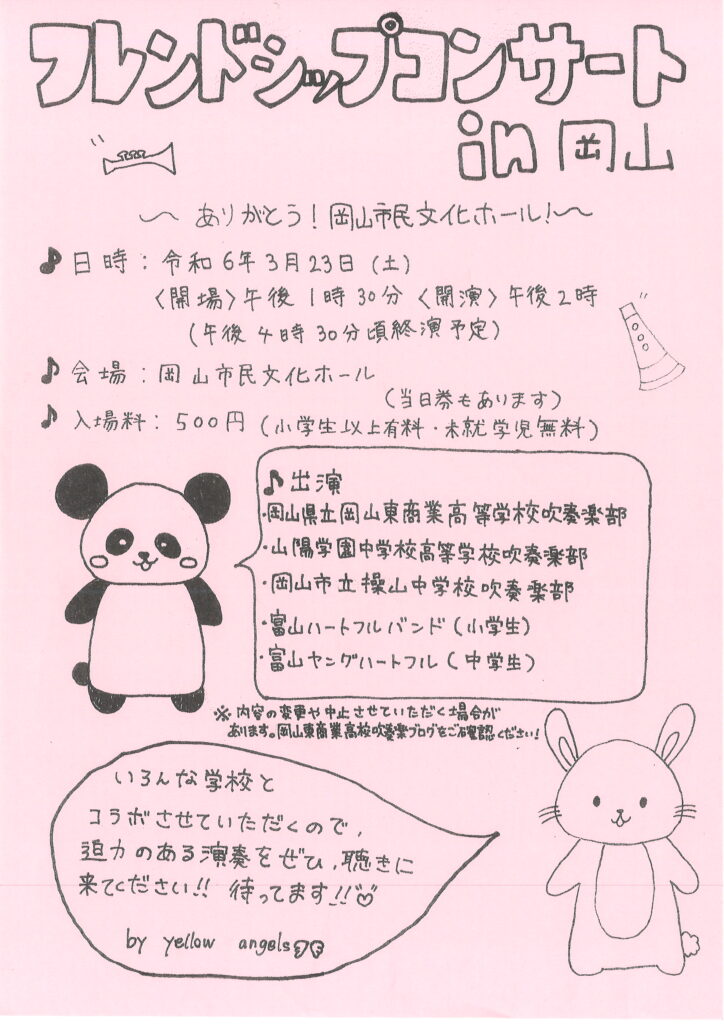 フレンドシップコンサート
in 岡山
〜 ありがとう！岡山市民文化ホール！〜
♪ 日時：令和6年3月23日（土）
〈開場〉午後1時30分〈開演〉午後2時
（午後4時30分頃終演予定）
♪ 会場：岡山市民文化ホール
（当日券もあります）
♪ 入場料：500円（小学生以上有料・未就学児無料）
♪ 出演
・岡山県立岡山東商業高等学校吹奏楽部
・山陽学園中学校高等学校吹奏楽部
・岡山市立操山中学校吹奏楽部
・富山ハートフルバンド（小学生）
・富山ヤングハートフル（中学生）
※内容の変更や中止させていただく場合が
あります。岡山東商業高校吹奏楽ブログをご確認ください！
いろんな学校と
コラボさせていただくので、
迫力のある演奏をぜひ、聴きに
来てください!! 待ってます!!♡
by yellow angels